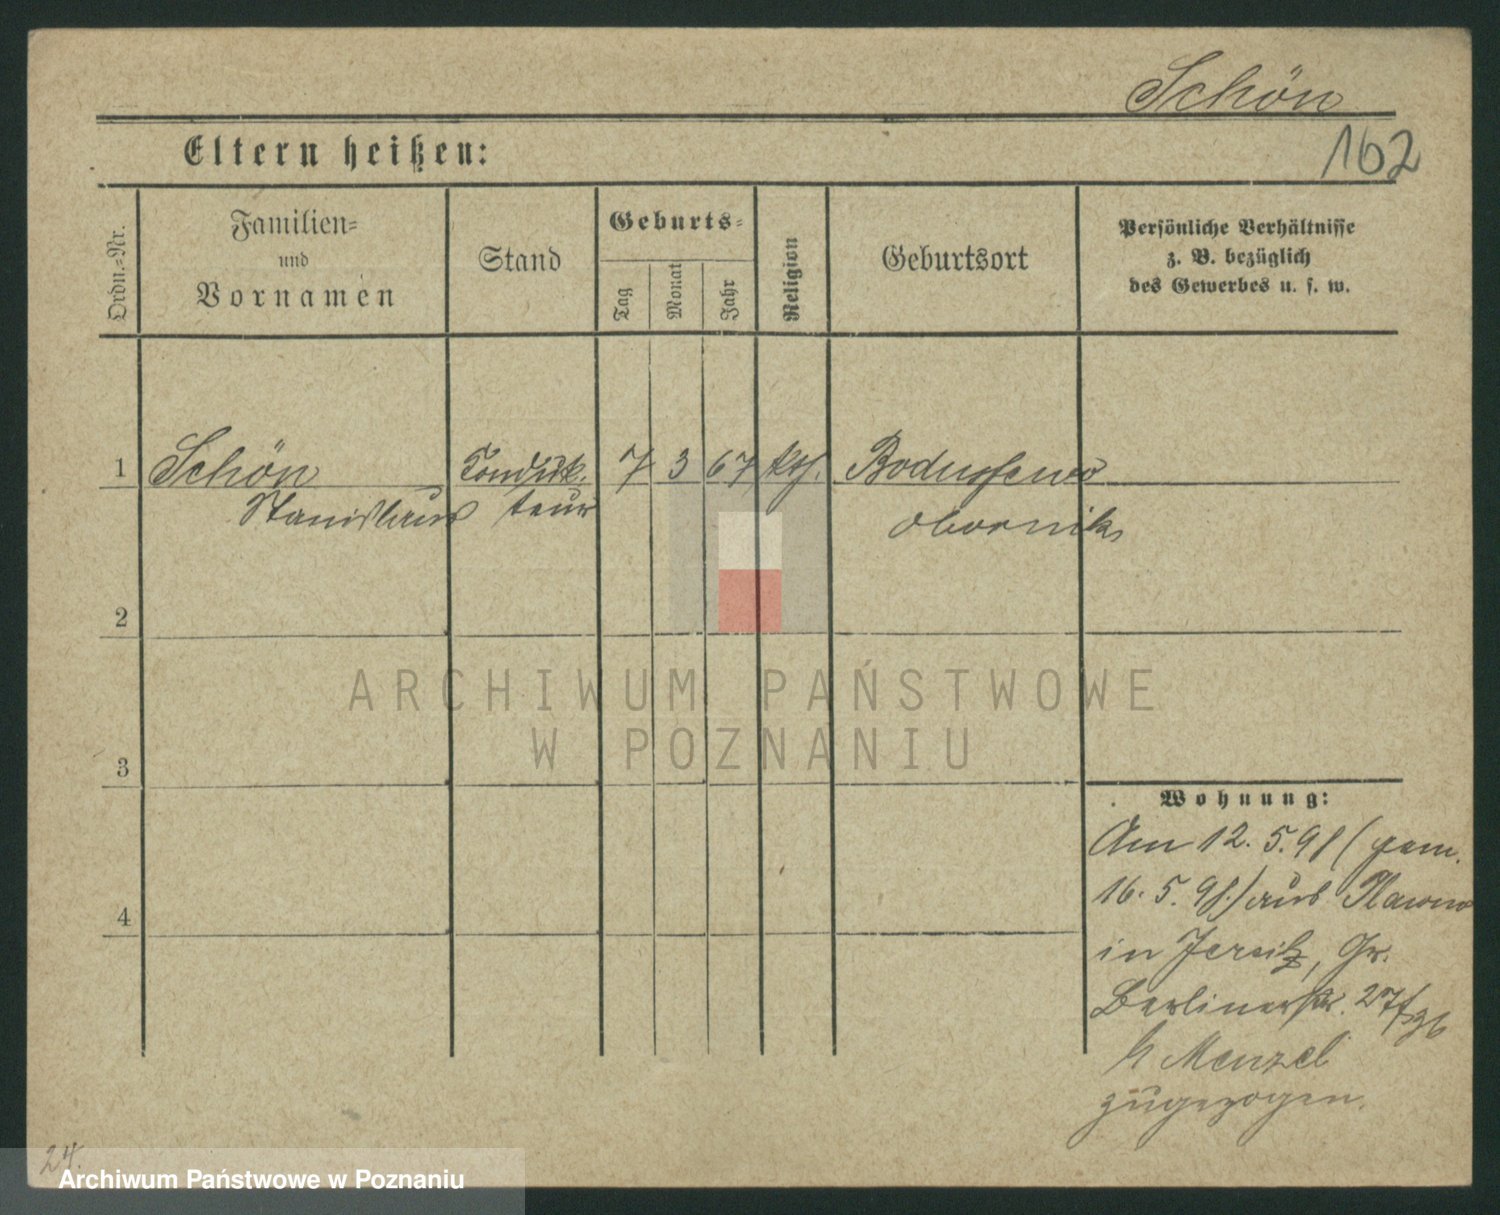 Schön
162
Eltern heißen:
Ordn.-Nr.
Familien-
und
Vornamen
Stand
Geburts-
Tag
Monat
Jahr
Religion
Geburtsort
Persönliche Verhältnisse
z. B. bezüglich
des Gewerbes u. s. w.
1 Schön Conduk- 7 3 67 kth.
Stanislaus teur Obornik
2
3
4
Wohnung:
Am 12. 5. 98 (gem.
16. 5. 98.) aus
in Jersitz, Gr.
Berlinerstr. 27
b Menzel
zugezogen.
24.
ARCHIWUM PAŃSTWOWE
W POZNANIU
Archiwum Państwowe w Poznaniu